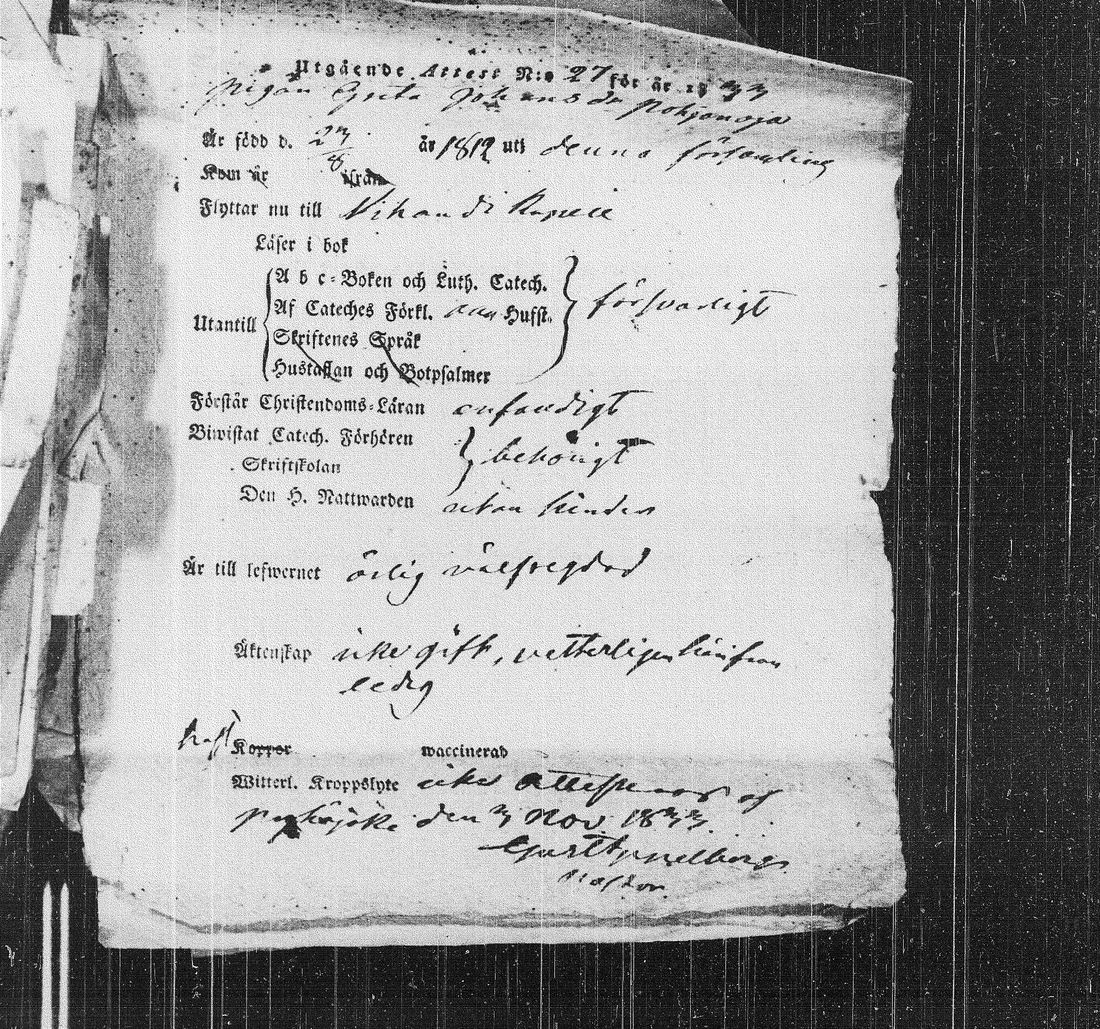 Utgående Attest N:o 27 för år 1833
pigan Greta Johansdr Pohjanoja
Är född d. 23/8 år 1812 uti denna församling
Kom år ifrån
Flyttar nu till
Läser i bok
A b c-Boken och Luth. Catech.
Af Cateches Förkl. Husft. försvarligt
Utantill
Skriftenes Språk
Hustaflan och Botpsalmer
Förstår Christendoms-Läran enfaldigt
Biwistat Catech. Förhören
behörigt
Skriftskolan
Den H. Nattwarden utan hinder
Är till lefwernet ärlig välfregdad
Äktenskap icke gift, vetterligen härifrån
ledig
haft Koppor waccinerad
Witterl. Kroppslyte icke Attesteras af
Pyhäjoki den 3 Nov. 1833
Pastor